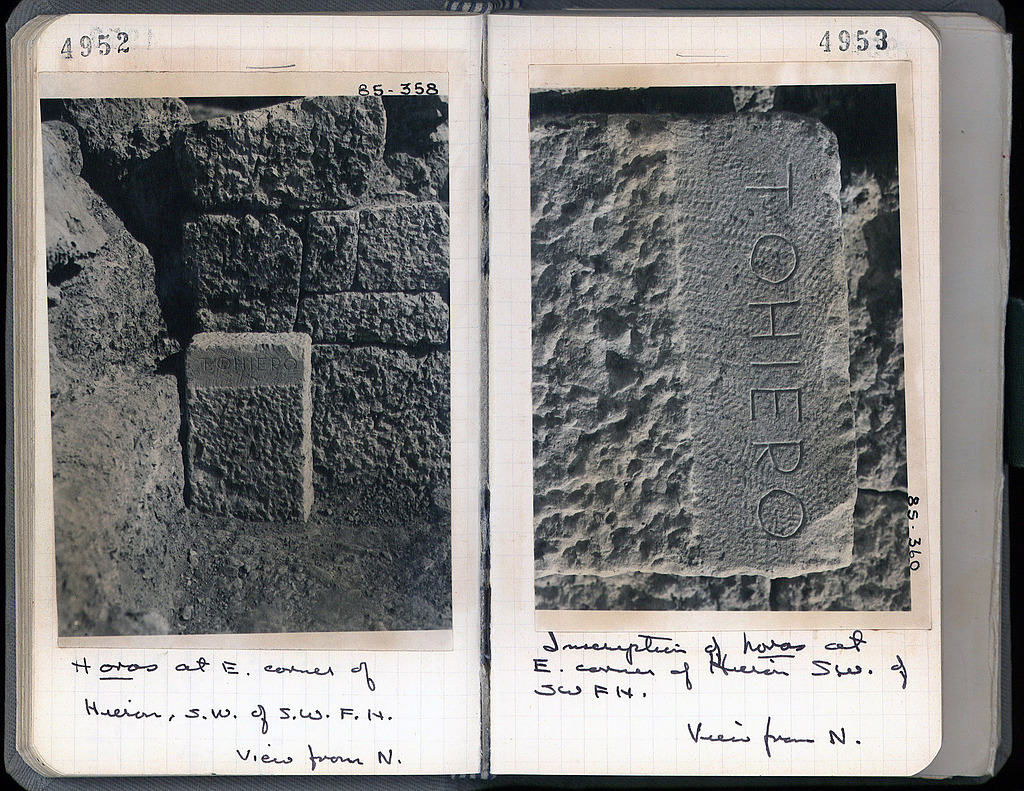 4952
85-358
TOHIERO
Horos at E. corner of
Hieron, S.W. of S.W. F.H.
View from N.
4953
TOHIERO
85-360
Inscription of horos at
E. corner of Hieron S.W. of
SW F.H.
View from N.